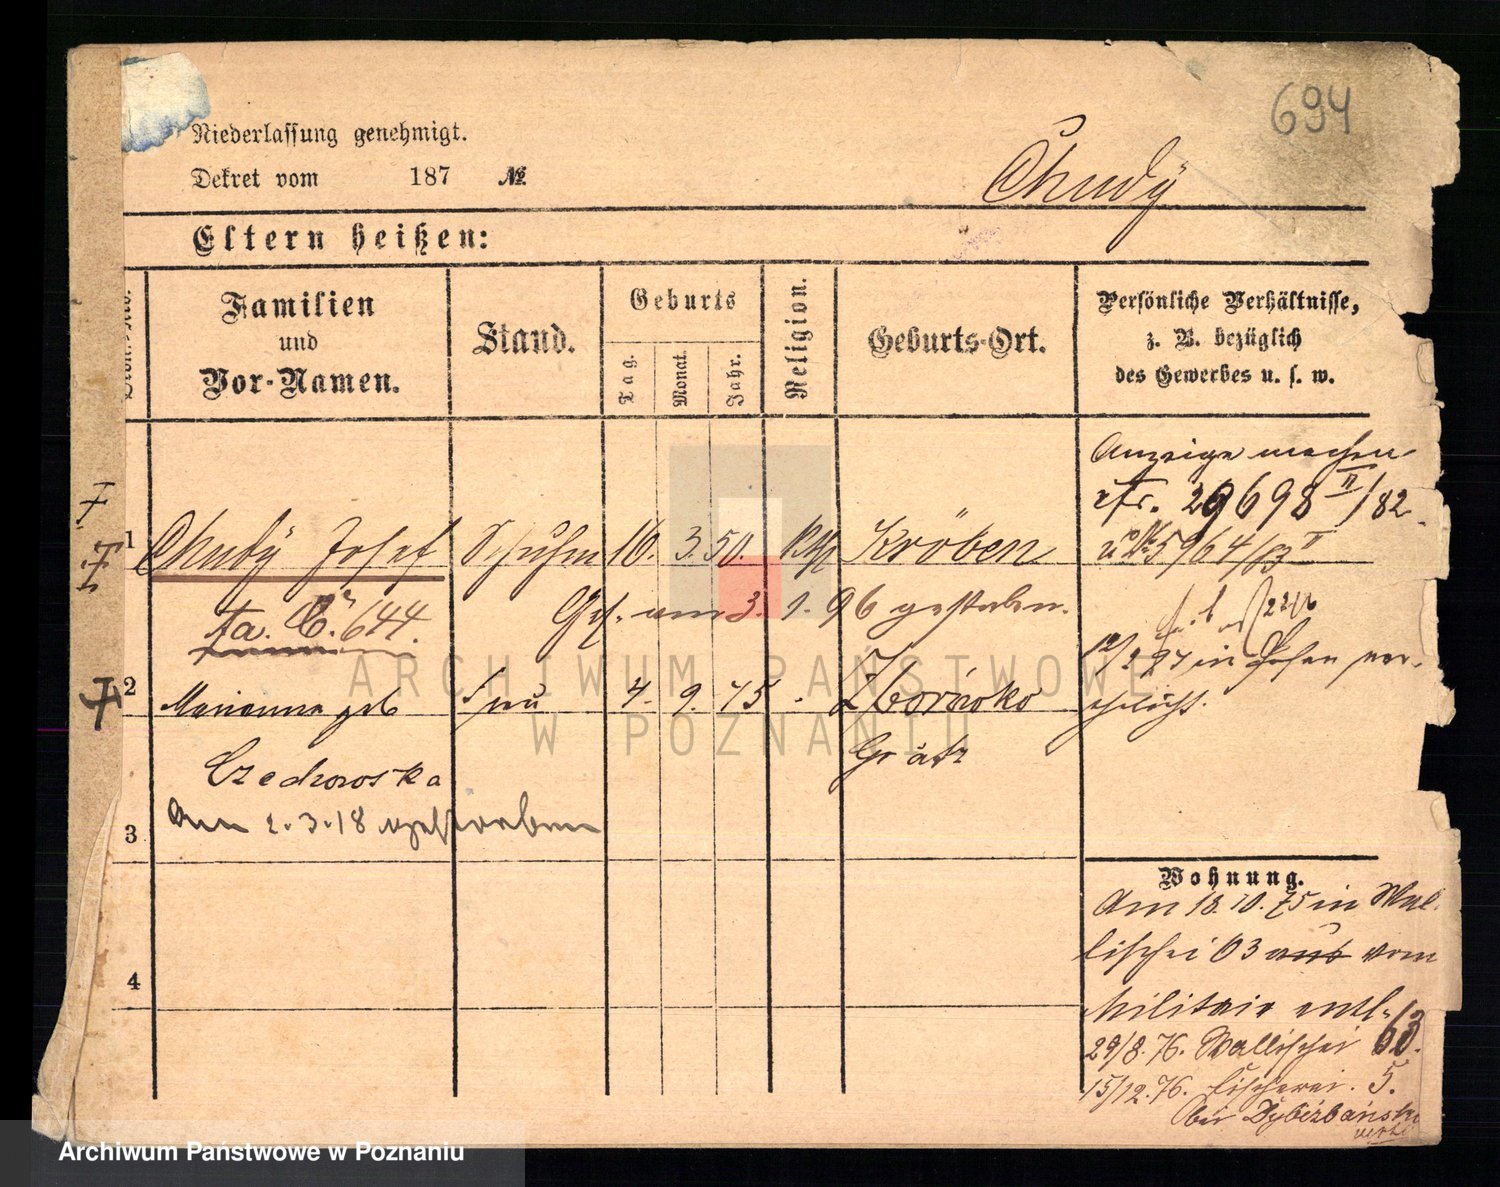 694
Niederlassung genehmigt.
Dekret vom 187 №
Chudÿ
Eltern heißen:
Familien und Vor-Namen.
Stand.
Geburts
Tag. Monat. Jahr.
Religion.
Geburts-Ort.
Persönliche Verhältnisse,
z. B. bezüglich
des Gewerbes u. s. w.
Anzeige machen
29698 II/82
5964/83 II
1 Chudÿ Josef Schuhm 16. 3. 50. Kröben
fa. C. 644. am 3. 1. 96 gestorben.
in Posen ver-
ehelicht.
2 Marianna geb Frau 4. 9. 75 Zborówko
Grätz
Czechowska
am 2. 3. 18 gestorben
3
4
Wohnung.
Am 18. 10. 75 in Wal-
lischei 63 aus vom
Militair entl.
29/8. 76. Wallischei 63.
15/12. 76. Fischerei. 5.
bei Dybizbański
ARCHIWUM PAŃSTWOWE
W POZNANIU
Archiwum Państwowe w Poznaniu